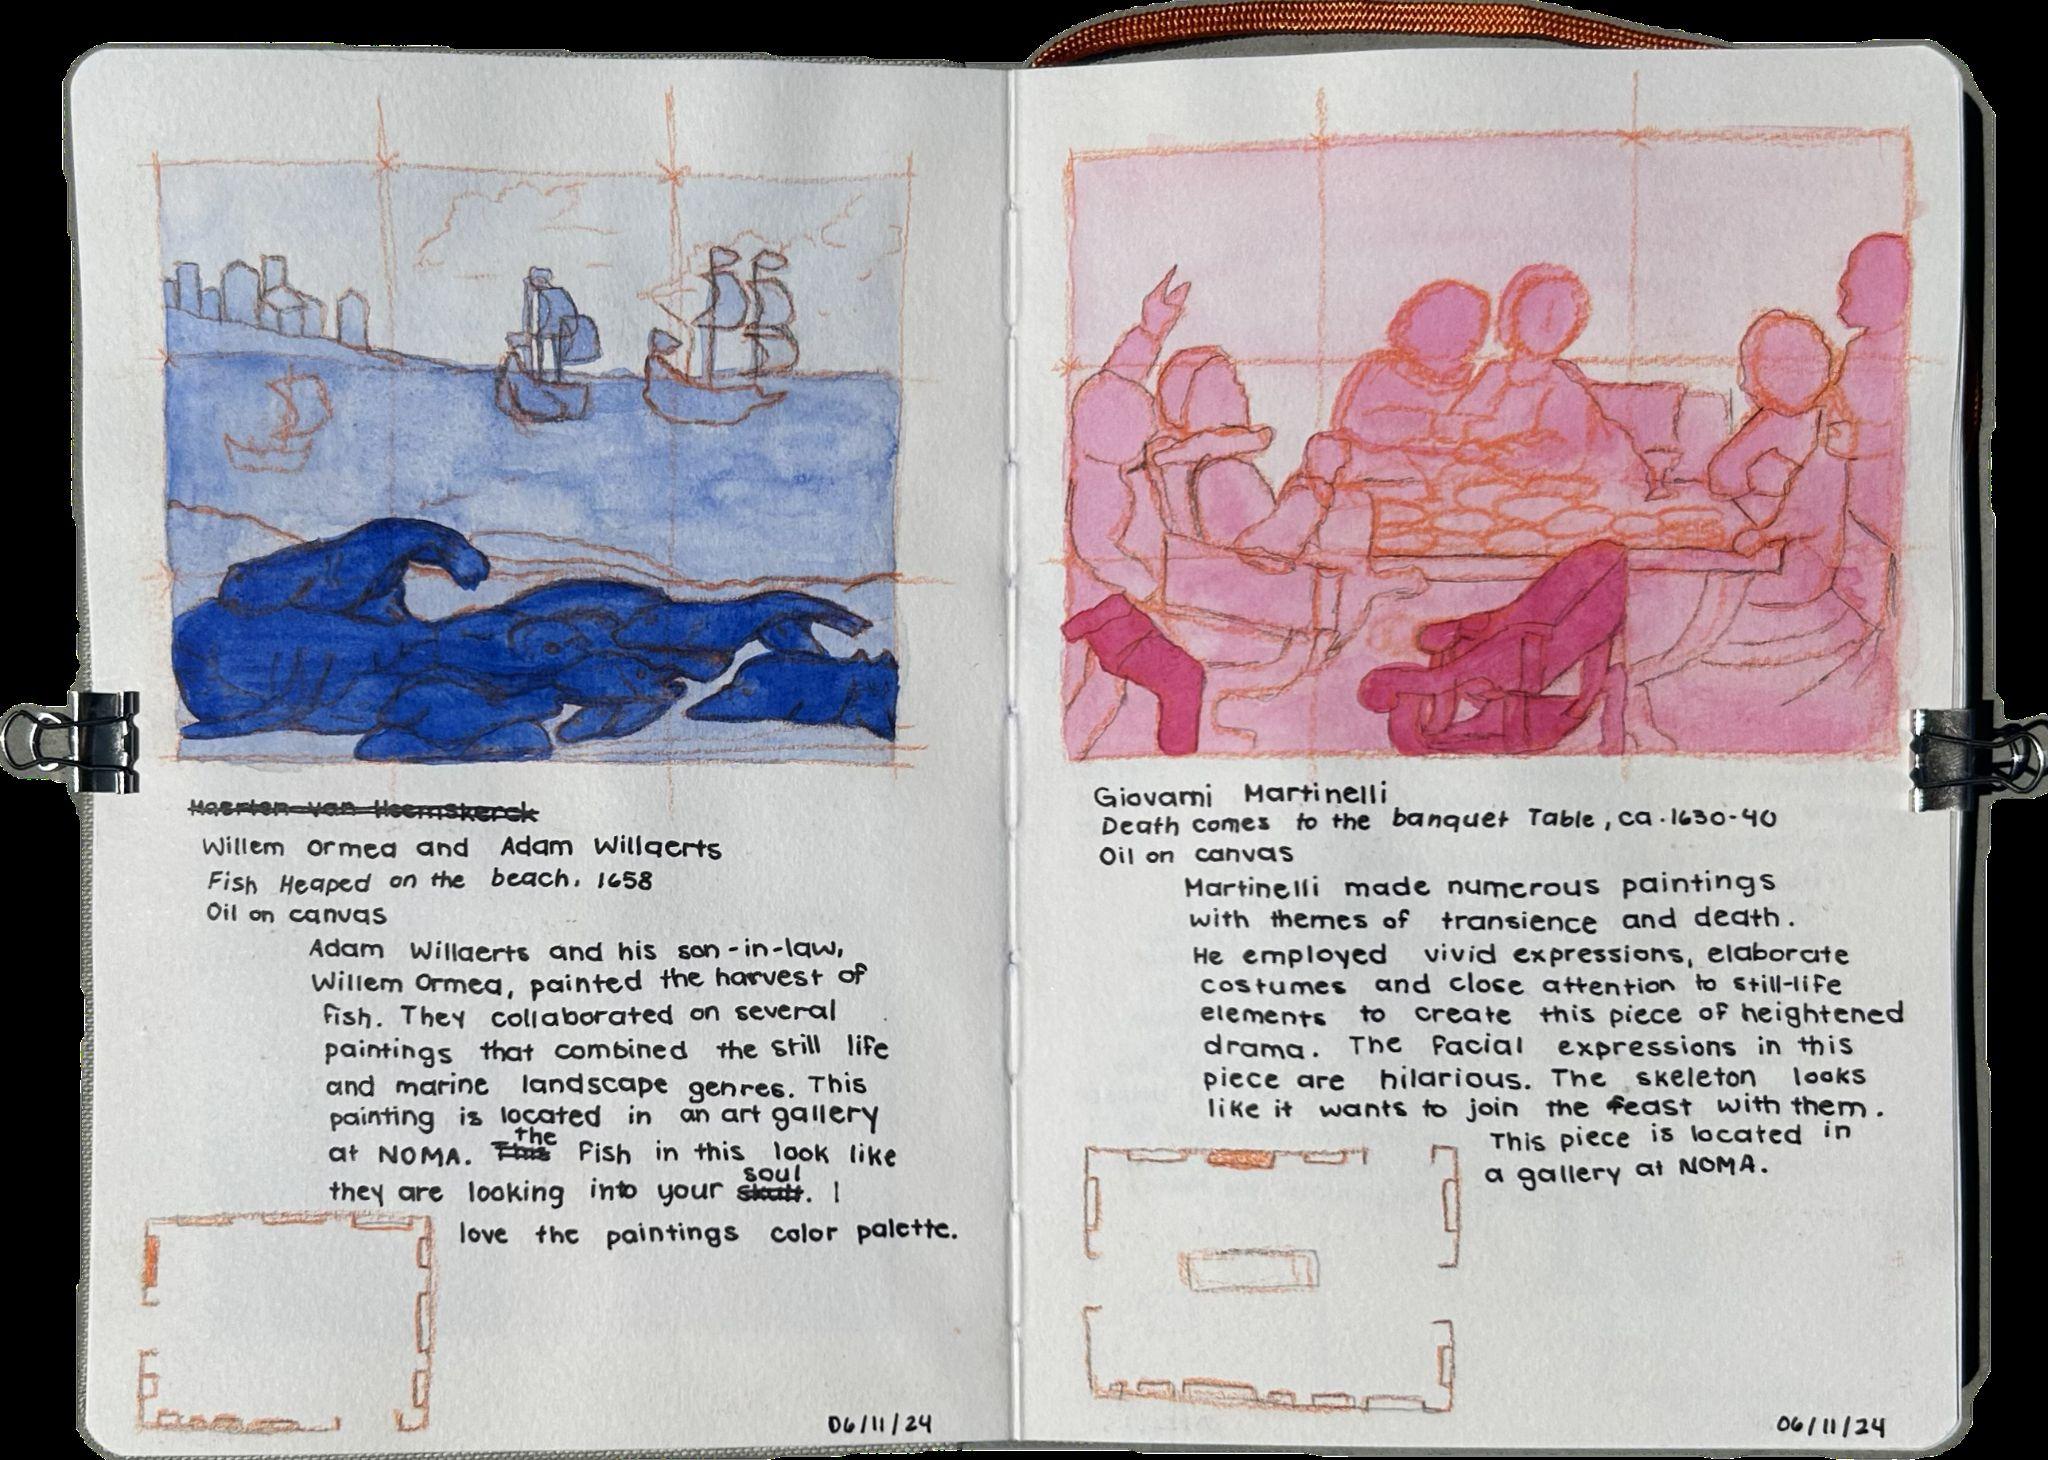 Maerten van Heemskerck
Willem Ormea and Adam Willaerts
Fish Heaped on the beach, 1658
Oil on canvas
Adam Willaerts and his son-in-law,
Willem Ormea, painted the harvest of
fish. They collaborated on several
paintings that combined the still life
and marine landscape genres. This
painting is located in an art gallery
at NOMA. This the Fish in this look like
they are looking into your skull soul. I
love the paintings color palette.
06/11/24
Giovanni Martinelli
Death comes to the banquet Table, ca. 1630-40
Oil on canvas
Martinelli made numerous paintings
with themes of transience and death.
He employed vivid expressions, elaborate
costumes and close attention to still-life
elements to create this piece of heightened
drama. The facial expressions in this
piece are hilarious. The skeleton looks
like it wants to join the feast with them.
This piece is located in
a gallery at NOMA.
06/11/24